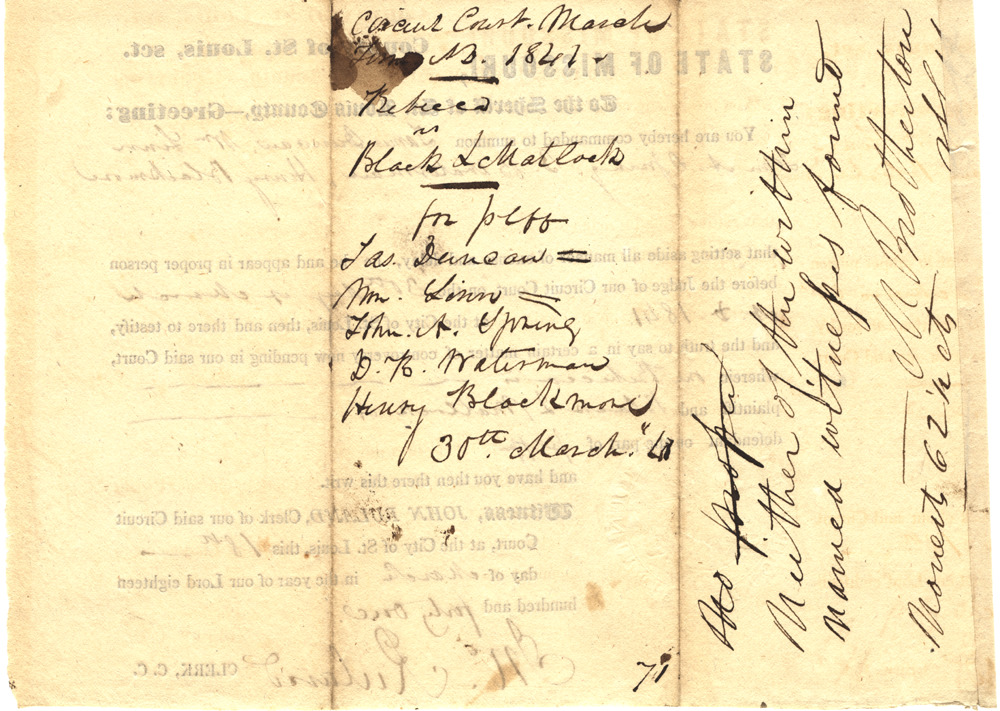 Circuit Court. March
Term AD. 1841.
Rebecca
vs
Black & Matlock
for pltff
Jas. Duncan =
Wm. Linn =
John. A. Spring
D. B. Waterman
Henry Blackmore
30th March. "41
71
Neither of the within
named witness found
M Brotherton
Monets 62 1/2 cts
STATE OF MISSOURI,
County of St. Louis, set.
To the Sheriff of St. Louis County,—Greeting:
You are hereby commanded to summon Duncan Wm Linn
Henry Blackmore
that setting aside all and appear in proper person
before the Judge of our Circuit Court, on the 30th day of March
1841 at the City of St. Louis, then and there to testify,
and the truth to say in a certain matter of controversy now pending in our said Court,
wherein Rebecca
plaintiff and
defendant on the part of
and have you then there this writ.
Witness, JOHN RULAND, Clerk of our said Circuit
Court, at the City of St. Louis, this 18th
day of March in the year of our Lord eighteen
hundred and forty one
Jno. Ruland CLERK, C. C.